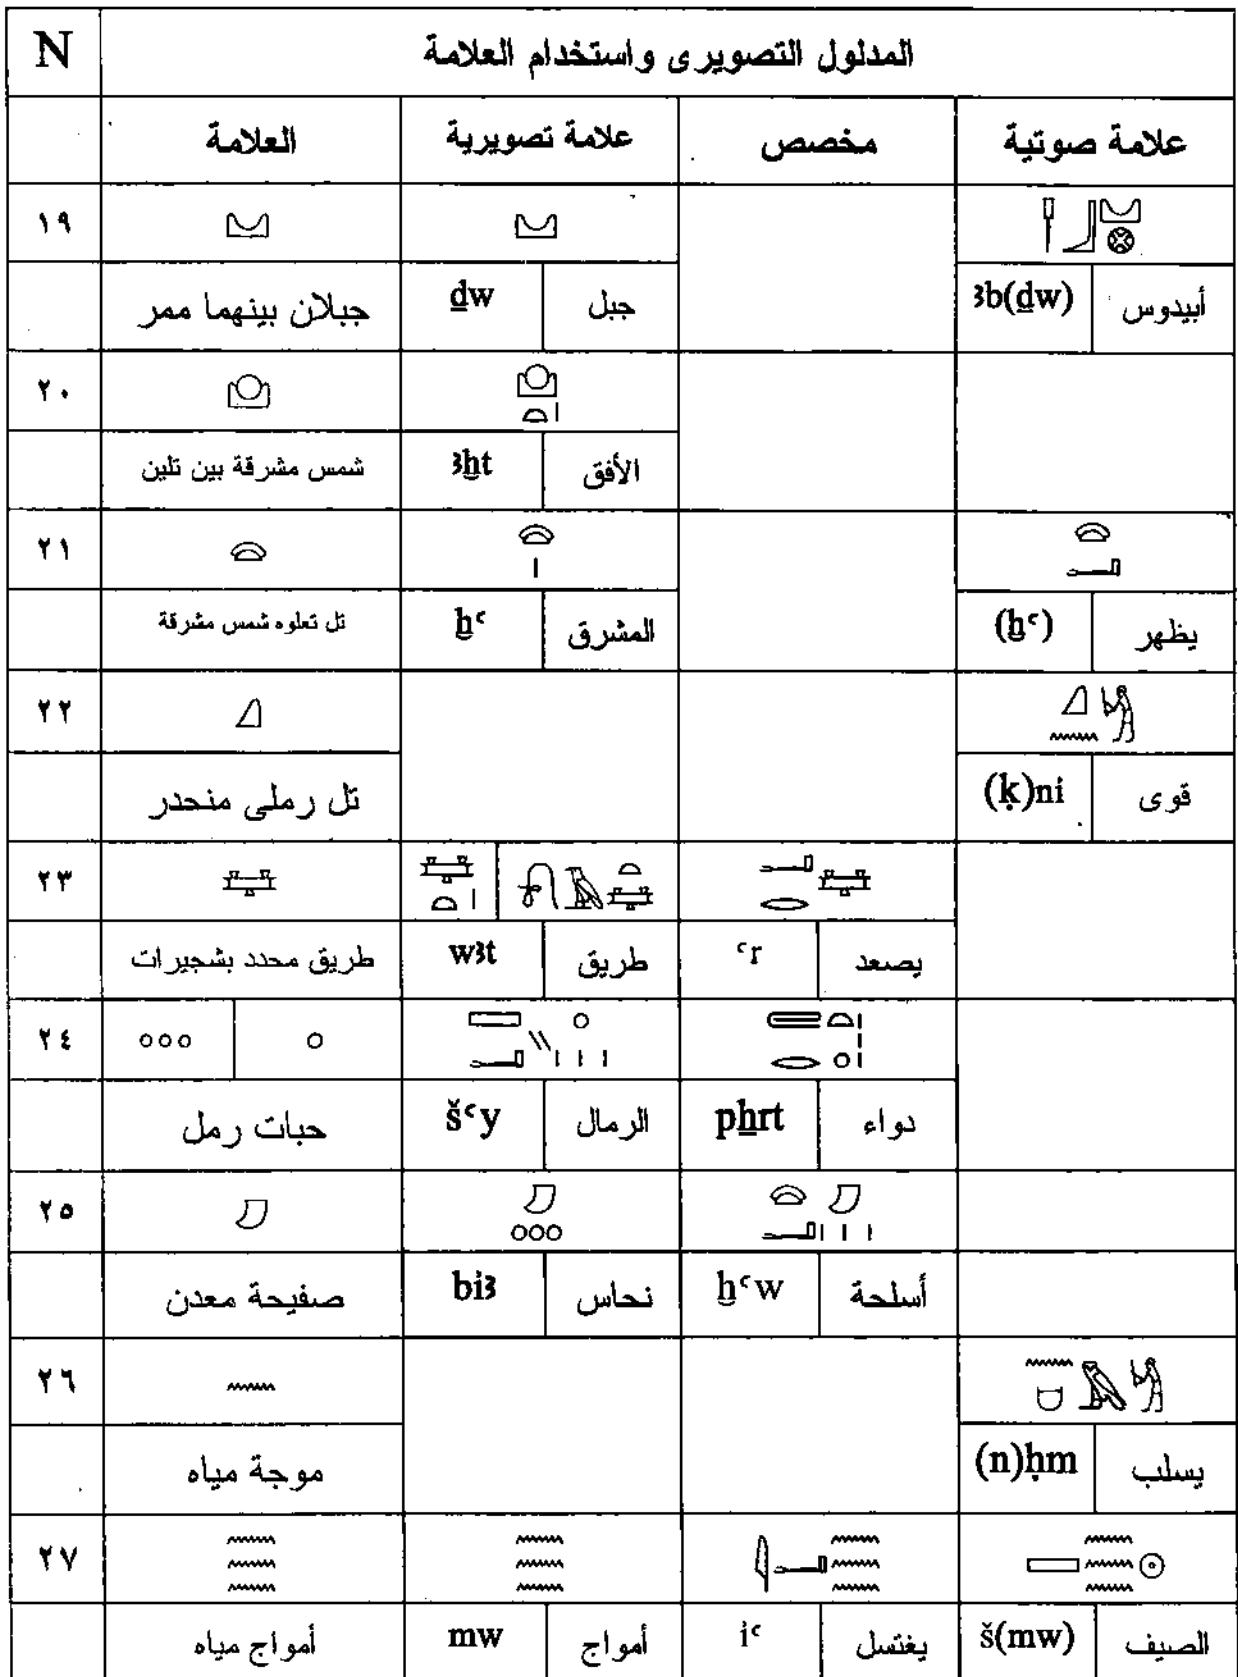 N المدلول التصويرى واستخدام العلامة
العلامة علامة تصويرية مخصص علامة صوتية
١٩
جبلان بينهما ممر ḏw جبل ꜣb(ḏw) أبيدوس
٢٠
شمس مشرقة بين تلين ꜣḫt الأفق
٢١
تل تعلوه شمس مشرقة ḫꜥ المشرق (ḫꜥ) يظهر
٢٢
تل رملى منحدر (ḳ)ni قوى
٢٣
طريق محدد بشجيرات wꜣt طريق ꜥr يصعد
٢٤
حبات رمل šꜥy الرمال pẖrt دواء
٢٥
صفيحة معدن biꜣ نحاس ḫꜥw أسلحة
٢٦
موجة مياه (n)ḥm يسلب
٢٧
أمواج مياه mw أمواج iꜥ يغتسل š(mw) الصيف